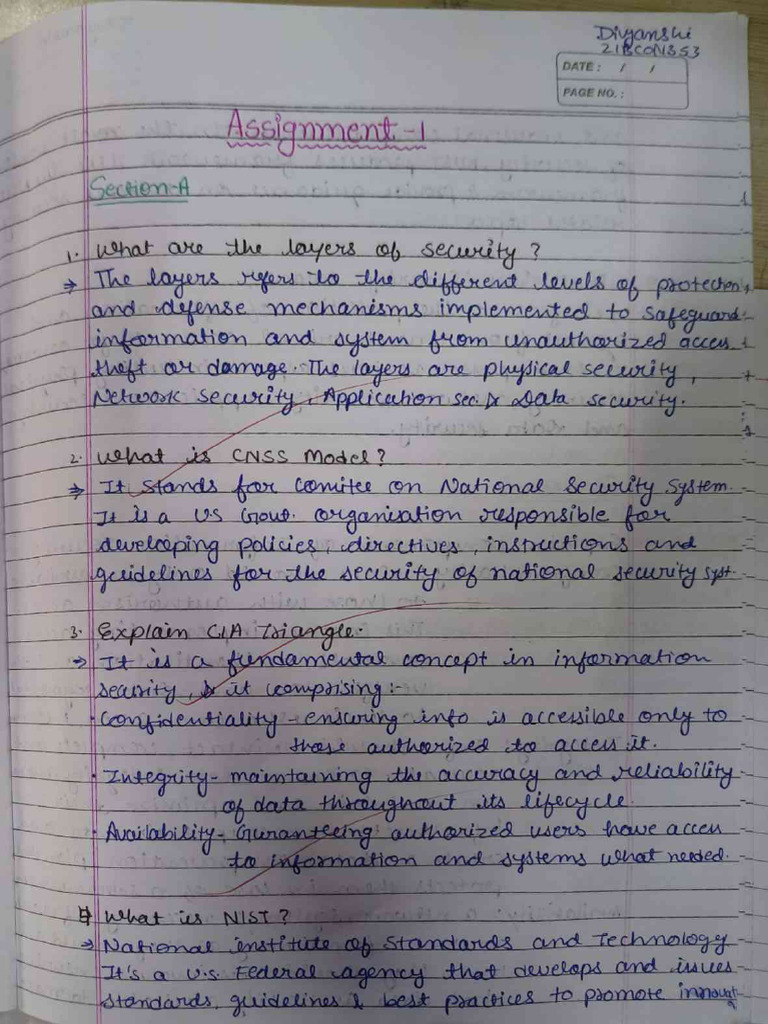 Divyanshi
21BCON353
DATE: / /
PAGE NO.:
Assignment-1
Section-A
1. What are the layers of security?
⇒ The layers refers to the different levels of protection
and defense mechanisms implemented to safeguard
information and system from unauthorized acces
theft or damage. The layers are physical security,
Network security, Application sec. & Data security.
2. What is CNSS Model?
⇒ It stands for Comitee on National Security System.
It is a US Govt. organisation responsible for
developing policies, directives, instructions and
guidelines for the security of national security syst.
3. Explain CIA Triangle.
→ It is a fundamental concept in information
security, it comprising:-
Confidentiality - ensuring info is accessible only to
those authorized to access it.
Integrity - maintaining the accuracy and reliability
of data throughout its lifecycle.
Availability - Guranteeing authorized users have acces
to information and systems what needed.
4 What is NIST?
→ National institute of Standards and Technology
It's a U.S. Federal agency that develops and issues
standards, guidelines & best practices to promote